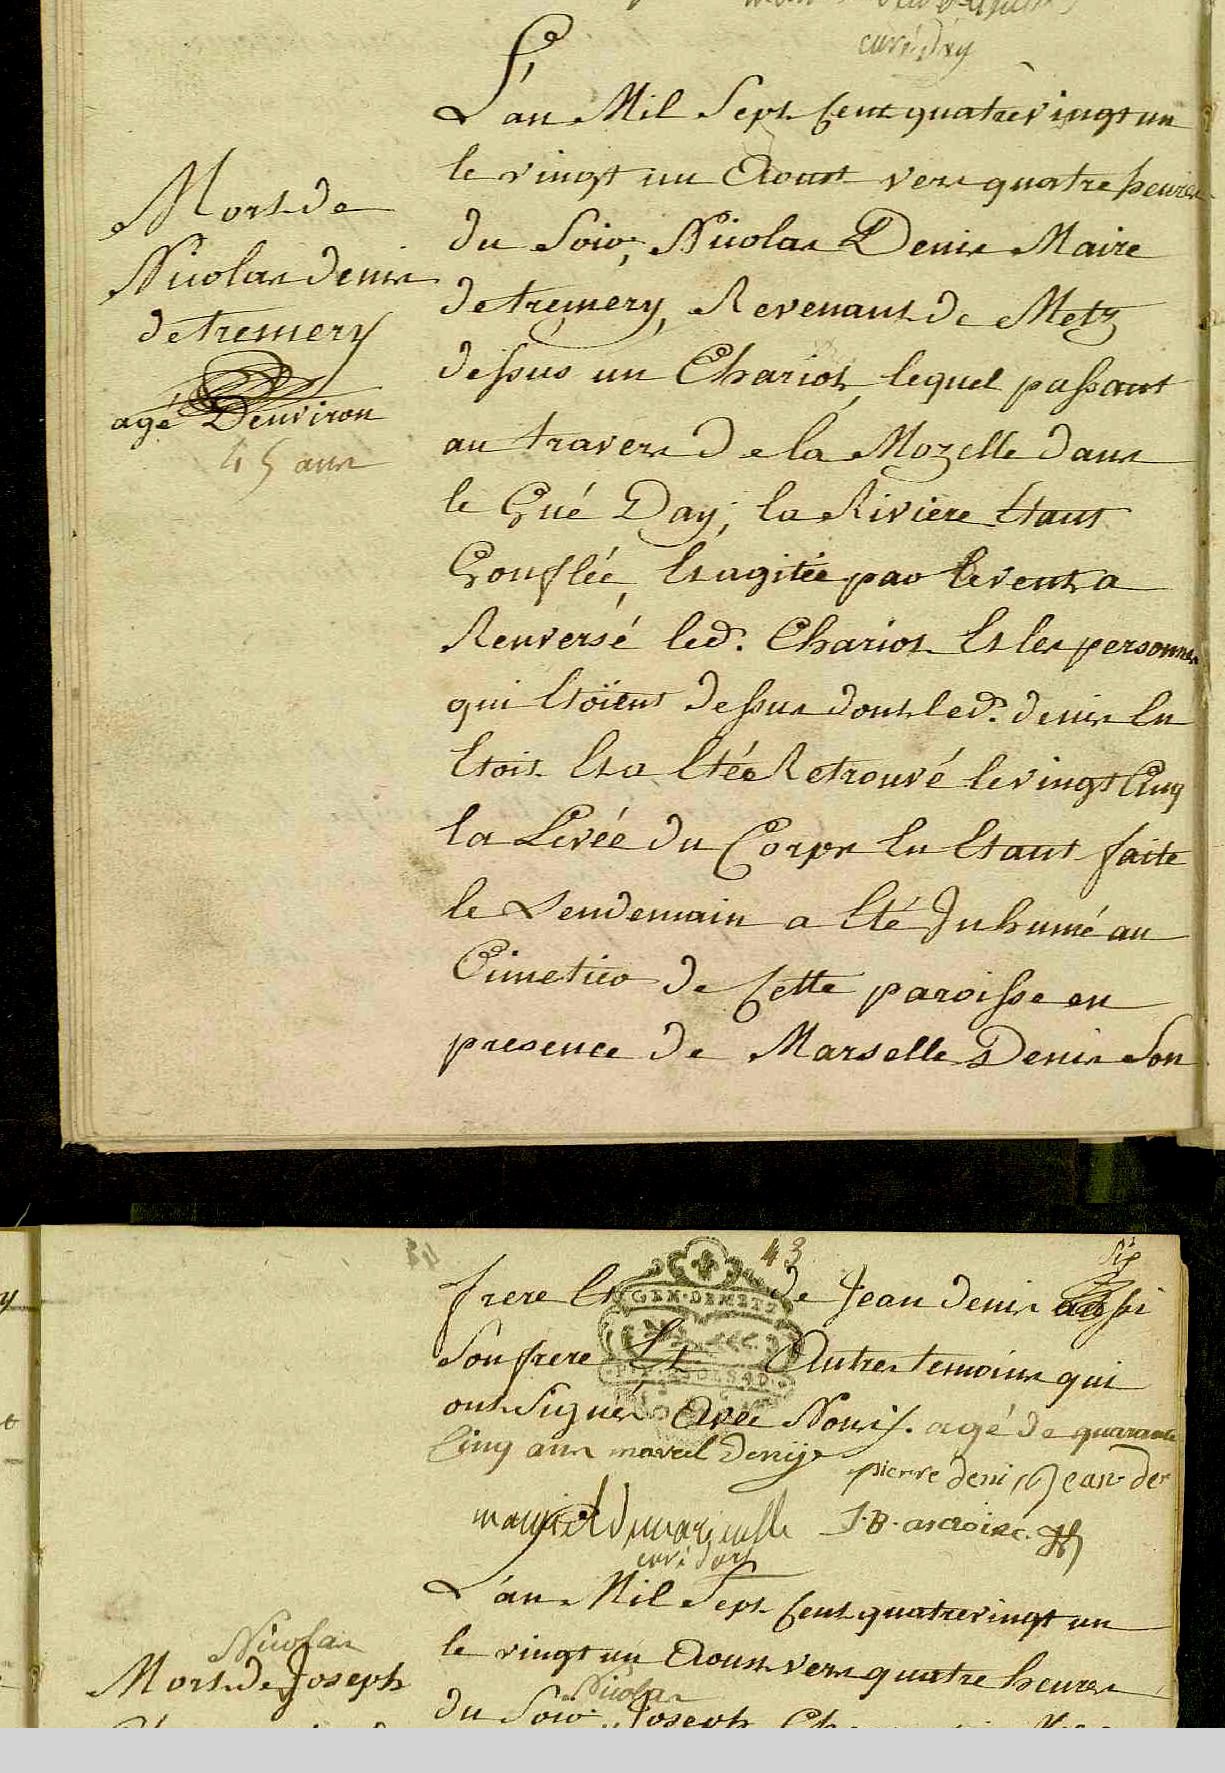 curé d'ay
L'an Mil Sept Cent quatrevingt un
le vingt un Aoust vers quatre heures
du Soir, Nicolas Denis Maire
de tremery, Revenant de Metz
dessus un Chariot, lequel passant
au travers De la Mozelle dans
le Gué Day, la Riviere Etant
Gonflée, Et agitée par le vent a
Renversé led. Chariot Et les personnes
qui Etoient dessus dont led. denis En
Etoit Et a Etée Retrouvé le vingt Cinq
la Levée du Corps En Etant faite
le Lendemain a Eté Inhumé au
Cimetiere de Cette paroisse en
presence de Marselle Denis Son
Mort de
Nicolas denis
de tremery
agé Denviron
45 ans
43
frere Et de Jean denis aussi
Son frere Et Autres temoins qui
ont Signés Avec Nous. agé de quarante
Cinq ans marcel Denise
pierre deni Jean de
J. B.
curé d'ay
GEN. DE METZ
L'an Mil Sept Cent quatrevingt un
le vingt un Aoust vers quatre heures
Nicolas
du Soir, Joseph
Nicolas
Mort de Joseph